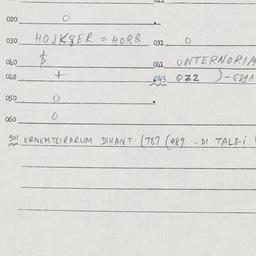 020 0
030 HOJKGER = HORB 031 0
040 $ 041 UNTERNORIA
042 + 043 QZZ )-GBJA
050 0
060 0
901 ERNEMTEIRARUM DIHANT (787 (489 .. DI TALS-I